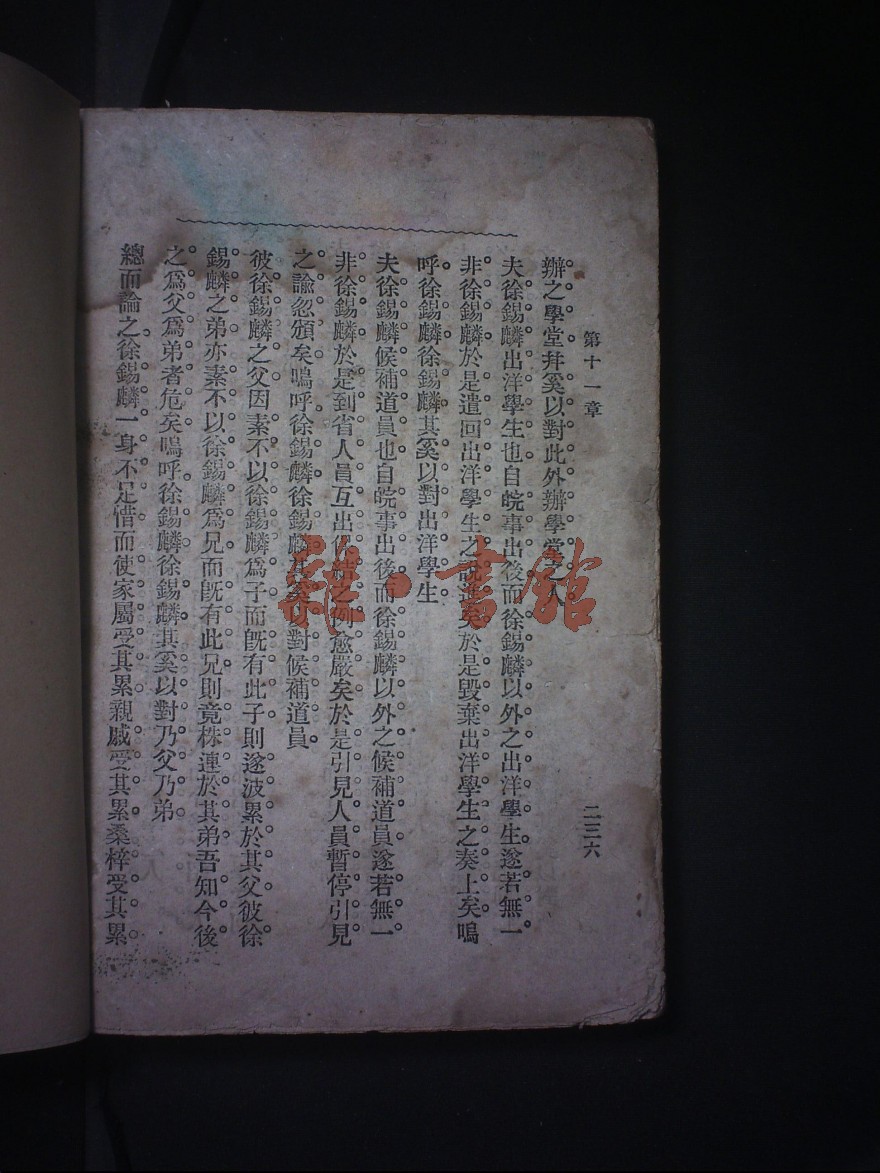 第十一章
二三六
辦之學堂幷奚以對此外辦學堂之人
夫徐錫麟出洋學生也自皖事出後而徐錫麟以外之出洋學生遂若無一
非徐錫麟於是遣回出洋學生之說進矣於是毀棄出洋學生之奏上矣嗚
呼徐錫麟徐錫麟其奚以對出洋學生
夫徐錫麟候補道員也自皖事出後而徐錫麟以外之候補道員遂若無一
非徐錫麟於是到省人員互出結之例愈嚴矣於是引見人員暫停引見
之諭忽頒矣嗚呼徐錫麟徐錫麟其奚以對候補道員
彼徐錫麟之父因素不以徐錫麟爲子而旣有此子則遂波累於其父彼徐
錫麟之弟亦素不以徐錫麟爲兄而旣有此兄則竟株連於其弟吾知今後
之爲父爲弟者危矣嗚呼徐錫麟徐錫麟其奚以對乃父乃弟
總而論之徐錫麟一身不足惜而使家屬受其累親戚受其累桑梓受其累
雜·書館